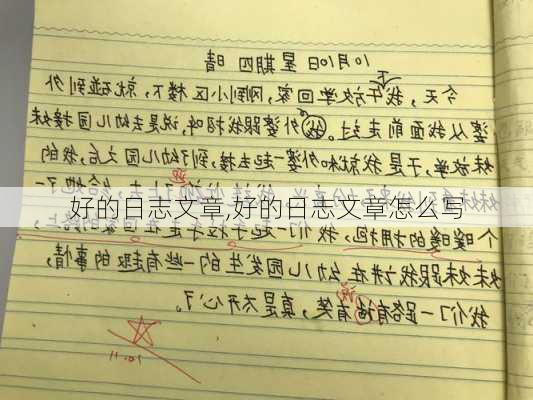 10月10日 星期四 晴
下
今天,我午放学回家,刚到小区楼下,就碰到外
婆从我面前走过。我外婆跟我招呼,说是去幼儿园接妹
妹放学,于是我就和外婆一起去接,到了幼儿园之后,我的
好的日志文章,好的日志文章怎么写
个暖暖的拥抱,我们一起手拉手走在回家的路上,
妹妹跟我讲在幼儿园发生的一些有趣的事情,
说
我们一路有有笑,真是太开心了。